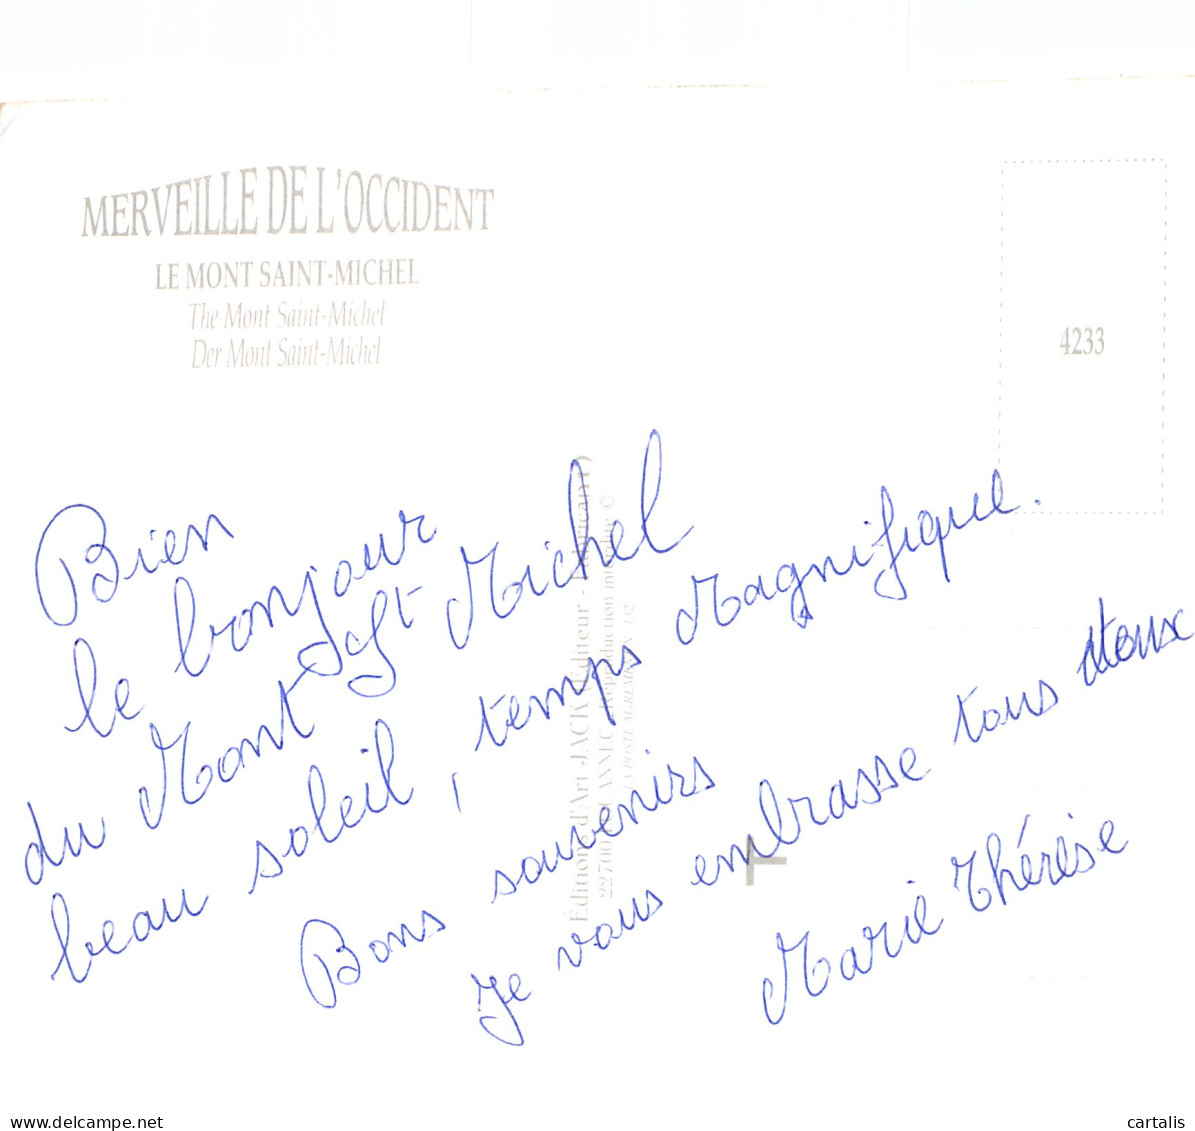 MERVEILLE DE L'OCCIDENT
LE MONT SAINT-MICHEL
The Mont Saint-Michel
Der Mont Saint-Michel
4233
Bien
le bonjour
du Mont St Michel
beau soleil, temps Magnifique.
Bons souvenirs
Je vous embrasse tous deux
Marie Thérèse
Éditions d'Art JACK (Éditeur - Fabricant)
22700 LOUANNEC Reproduction interdite ©
LA POSTE AGREMENT N° 1/2
delcampe.net
cartalis